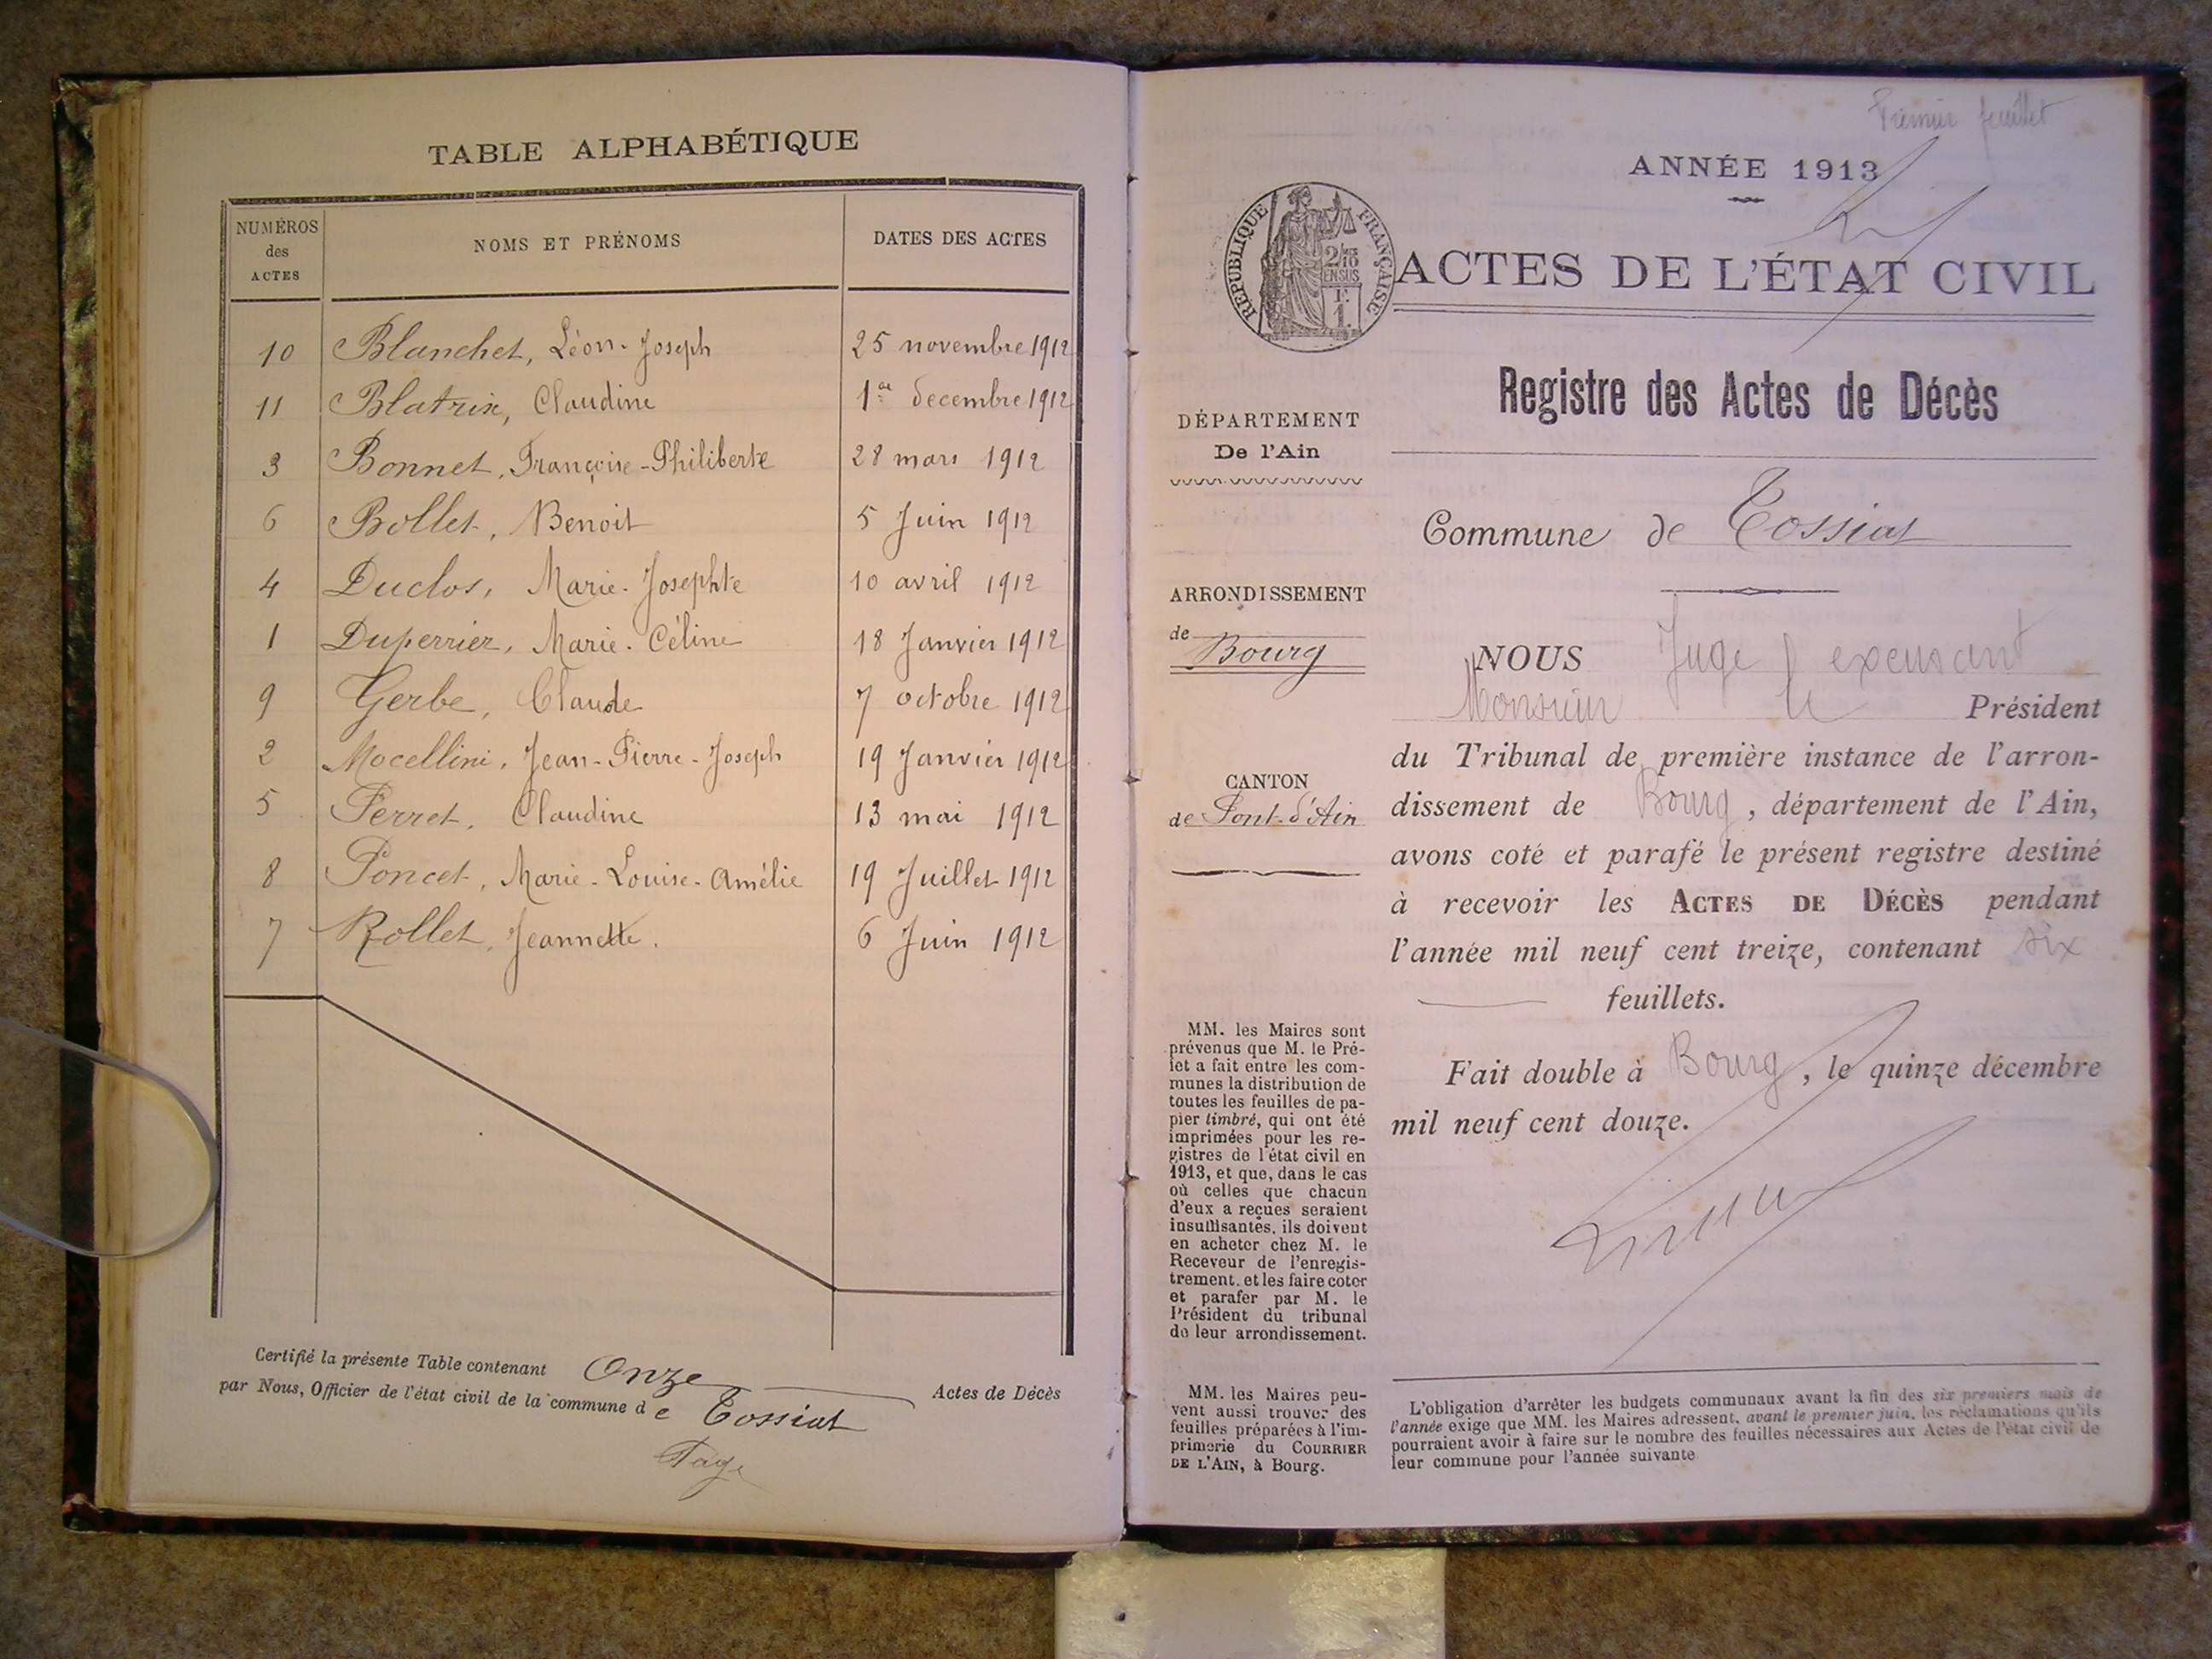 TABLE ALPHABÉTIQUE
NUMÉROS des ACTES NOMS ET PRÉNOMS DATES DES ACTES
10 Blanchet, Léon-Joseph 25 novembre 1912
11 Blatrix, Claudine 1er décembre 1912
3 Bonnet, Françoise-Philiberte 28 mars 1912
6 Bollet, Benoit 5 Juin 1912
4 Duclos, Marie-Josephte 10 avril 1912
1 Duperrier, Marie-Céline 18 Janvier 1912
9 Gerbe, Claude 7 octobre 1912
2 Mocellini, Jean-Pierre-Joseph 19 Janvier 1912
5 Perret, Claudine 13 mai 1912
8 Poncet, Marie-Louise-Amélie 19 Juillet 1912
7 Rollet, Jeannette. 6 Juin 1912
Certifié la présente Table contenant Onze Actes de Décès
par Nous, Officier de l'état civil de la commune de Tossiat
Premier feuillet
ANNÉE 1913
RÉPUBLIQUE FRANÇAISE
2/10 EN SUS
F. 1.
ACTES DE L'ÉTAT CIVIL
Registre des Actes de Décès
DÉPARTEMENT
De l'Ain
Commune de Tossiat
ARRONDISSEMENT
de Bourg
CANTON
de Pont-d'Ain
NOUS Juge excusant
Monsieur le Président
du Tribunal de première instance de l'arron-
dissement de Bourg, département de l'Ain,
avons coté et parafé le présent registre destiné
à recevoir les ACTES DE DÉCÈS pendant
l'année mil neuf cent treize, contenant six
feuillets.
Fait double à Bourg, le quinze décembre
mil neuf cent douze.
MM. les Maires sont
prévenus que M. le Pré-
fet a fait entre les com-
munes la distribution de
toutes les feuilles de pa-
pier timbré, qui ont été
imprimées pour les re-
gistres de l'état civil en
1913, et que, dans le cas
où celles que chacun
d'eux a reçues seraient
insuffisantes, ils doivent
en acheter chez M. le
Receveur de l'enregis-
trement, et les faire coter
et parafer par M. le
Président du tribunal
de leur arrondissement.
MM. les Maires peu-
vent aussi trouver des
feuilles préparées à l'im-
primerie du COURRIER
DE L'AIN, à Bourg.
L'obligation d'arrêter les budgets communaux avant la fin des six premiers mois de
l'année exige que MM. les Maires adressent, avant le premier juin, les réclamations qu'ils
pourraient avoir à faire sur le nombre des feuilles nécessaires aux Actes de l'état civil de
leur commune pour l'année suivante